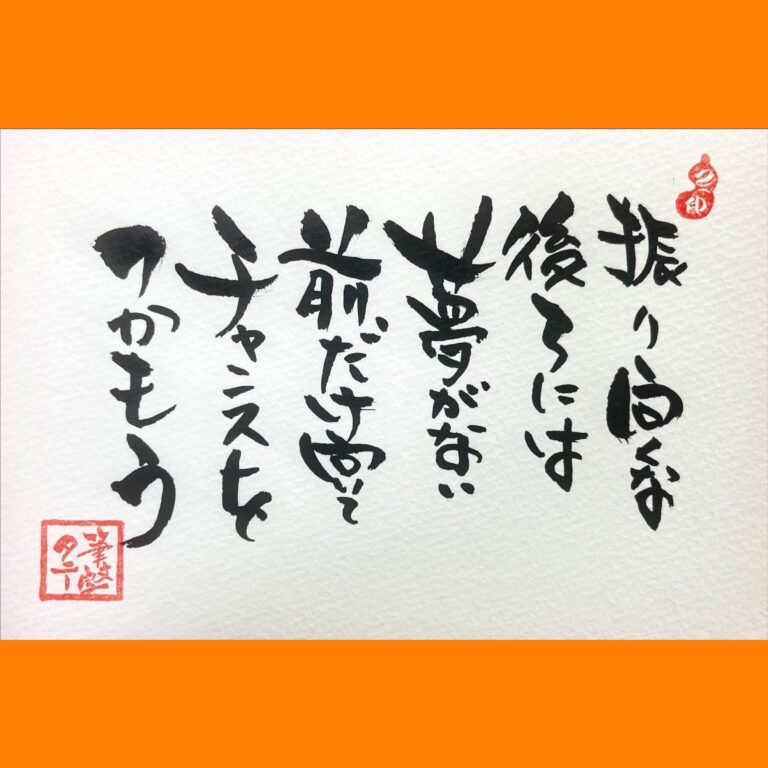 振り向くな
後ろには
夢がない
前だけ向いて
チャンスを
つかもう